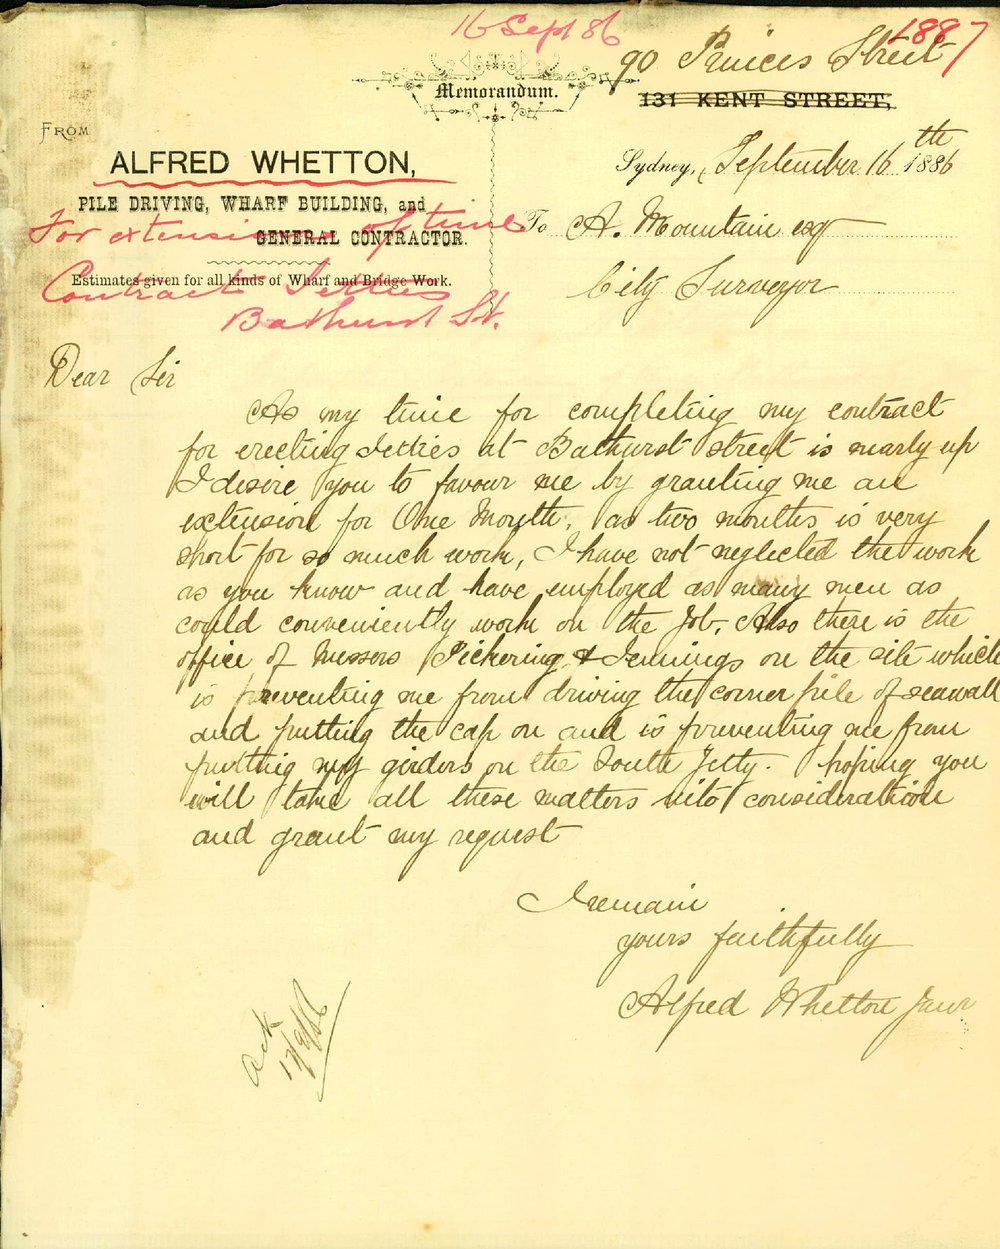 16 Sept 86
1887
90 Princes Street
Memorandum.
131 KENT STREET,
FROM
ALFRED WHETTON,
PILE DRIVING, WHARF BUILDING, and
GENERAL CONTRACTOR.
Estimates given for all kinds of Wharf and Bridge Work.
For extension of time
Contract Jetties
Bathurst St.
Sydney, September 16th 1886
To A. Mountain esq
City Surveyor
Dear Sir
As my time for completing my contract
for erecting Jetties at Bathurst street is nearly up
I desire you to favour me by granting me an
extension for One Month, as two months is very
short for so much work, I have not neglected the work
as you know and have employed as many men as
could conveniently work on the Job. Also there is the
office of Messers Pickering & Jennings on the site which
is preventing me from driving the corner pile of seawall
and putting the cap on and is preventing me from
putting my girders on the South Jetty. hoping you
will take all these matters into consideration
and grant my request
I remain
yours faithfully
Alfred Whetton Junr
Ack
17/9/86